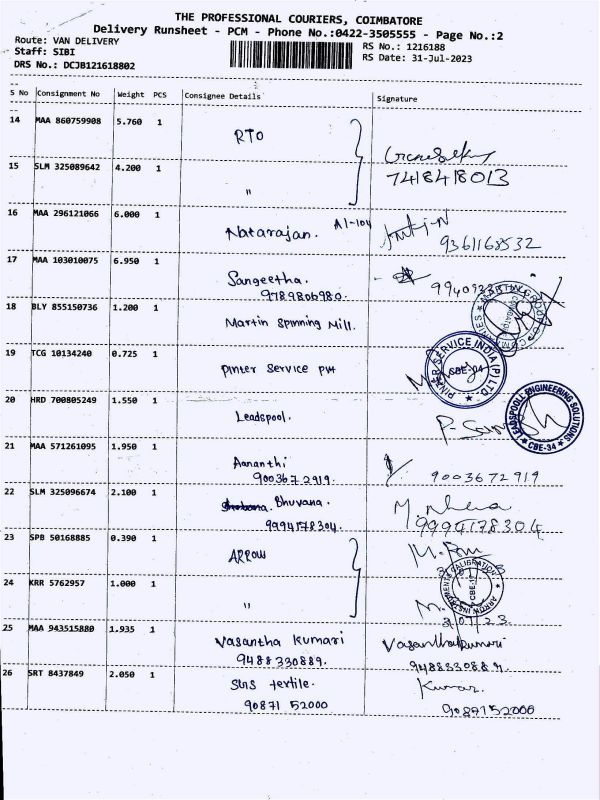 THE PROFESSIONAL COURIERS, COIMBATORE
Delivery Runsheet - PCM - Phone No.:0422-3505555 - Page No.:2
Route: VAN DELIVERY
RS No.: 1216188
Staff: SIBI
RS Date: 31-Jul-2023
DRS No.: DCJB121618802
S No Consignment No Weight PCS Consignee Details Signature
14 MAA 860759908 5.760 1 RTO
15 SLM 325089642 4.200 1 "
7418418013
16 MAA 296121066 6.000 1 Natarajan. A1-104
9361168532
17 MAA 103010075 6.950 1 Sangeetha.
9789806980.
18 BLY 855150736 1.200 1 Martin Spinning Mill.
19 TCG 10134240 0.725 1 Pinter Service pvt
PINTER SERVICE INDIA (P) LTD. CBE-04
20 HRD 700805249 1.550 1 Leadspool.
LEADSPOOL ENGINEERING SOLUTIONS CBE-34
21 MAA 571261095 1.950 1 Aananthi
9003672919. 9003672919
22 SLM 325096674 2.100 1 Bhuvana.
9994178304. 9994178304
23 SPB 50168885 0.390 1 ARROW
24 KRR 5762957 1.000 1 "
25 MAA 943515880 1.935 1 Vasantha Kumari Vasanthakumari
9488330889. 9488330889.
26 SRT 8437849 2.050 1 SHS textile. Kumar.
90871 52000 9087152000